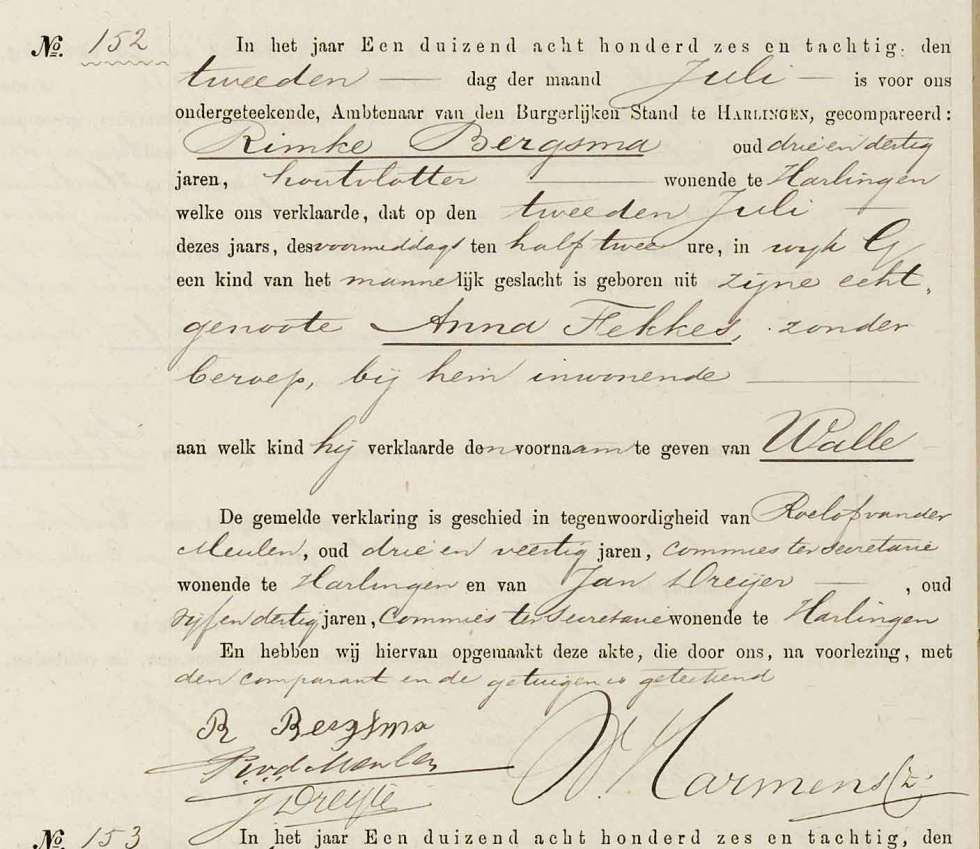 No. 152
In het jaar Een duizend acht honderd zes en tachtig, den
tweeden dag der maand Juli is voor ons
ondergeteekende, Ambtenaar van den Burgerlijken Stand te HARLINGEN, gecompareerd:
Rimke Bergsma oud drie en dertig
jaren, houtvlotter wonende te Harlingen
welke ons verklaarde, dat op den tweeden Juli
dezes jaars, des voormiddags ten half twee ure, in wijk G
een kind van het mannelijk geslacht is geboren uit zijne echt-
genoote Anna Fekkes, zonder
beroep, bij hem inwonende
aan welk kind hij verklaarde den voornaam te geven van Walle
De gemelde verklaring is geschied in tegenwoordigheid van Roelof van der
Meulen, oud drie en veertig jaren, commies ter secretarie
wonende te Harlingen en van Jan Dreijer, oud
vijf en dertig jaren, Commies ter Secretarie wonende te Harlingen
En hebben wij hiervan opgemaakt deze akte, die door ons, na voorlezing, met
den comparant en de getuigen is geteekend
R Bergsma
R v d Meulen
J Dreijer
Harmens
No. 153
In het jaar Een duizend acht honderd zes en tachtig, den